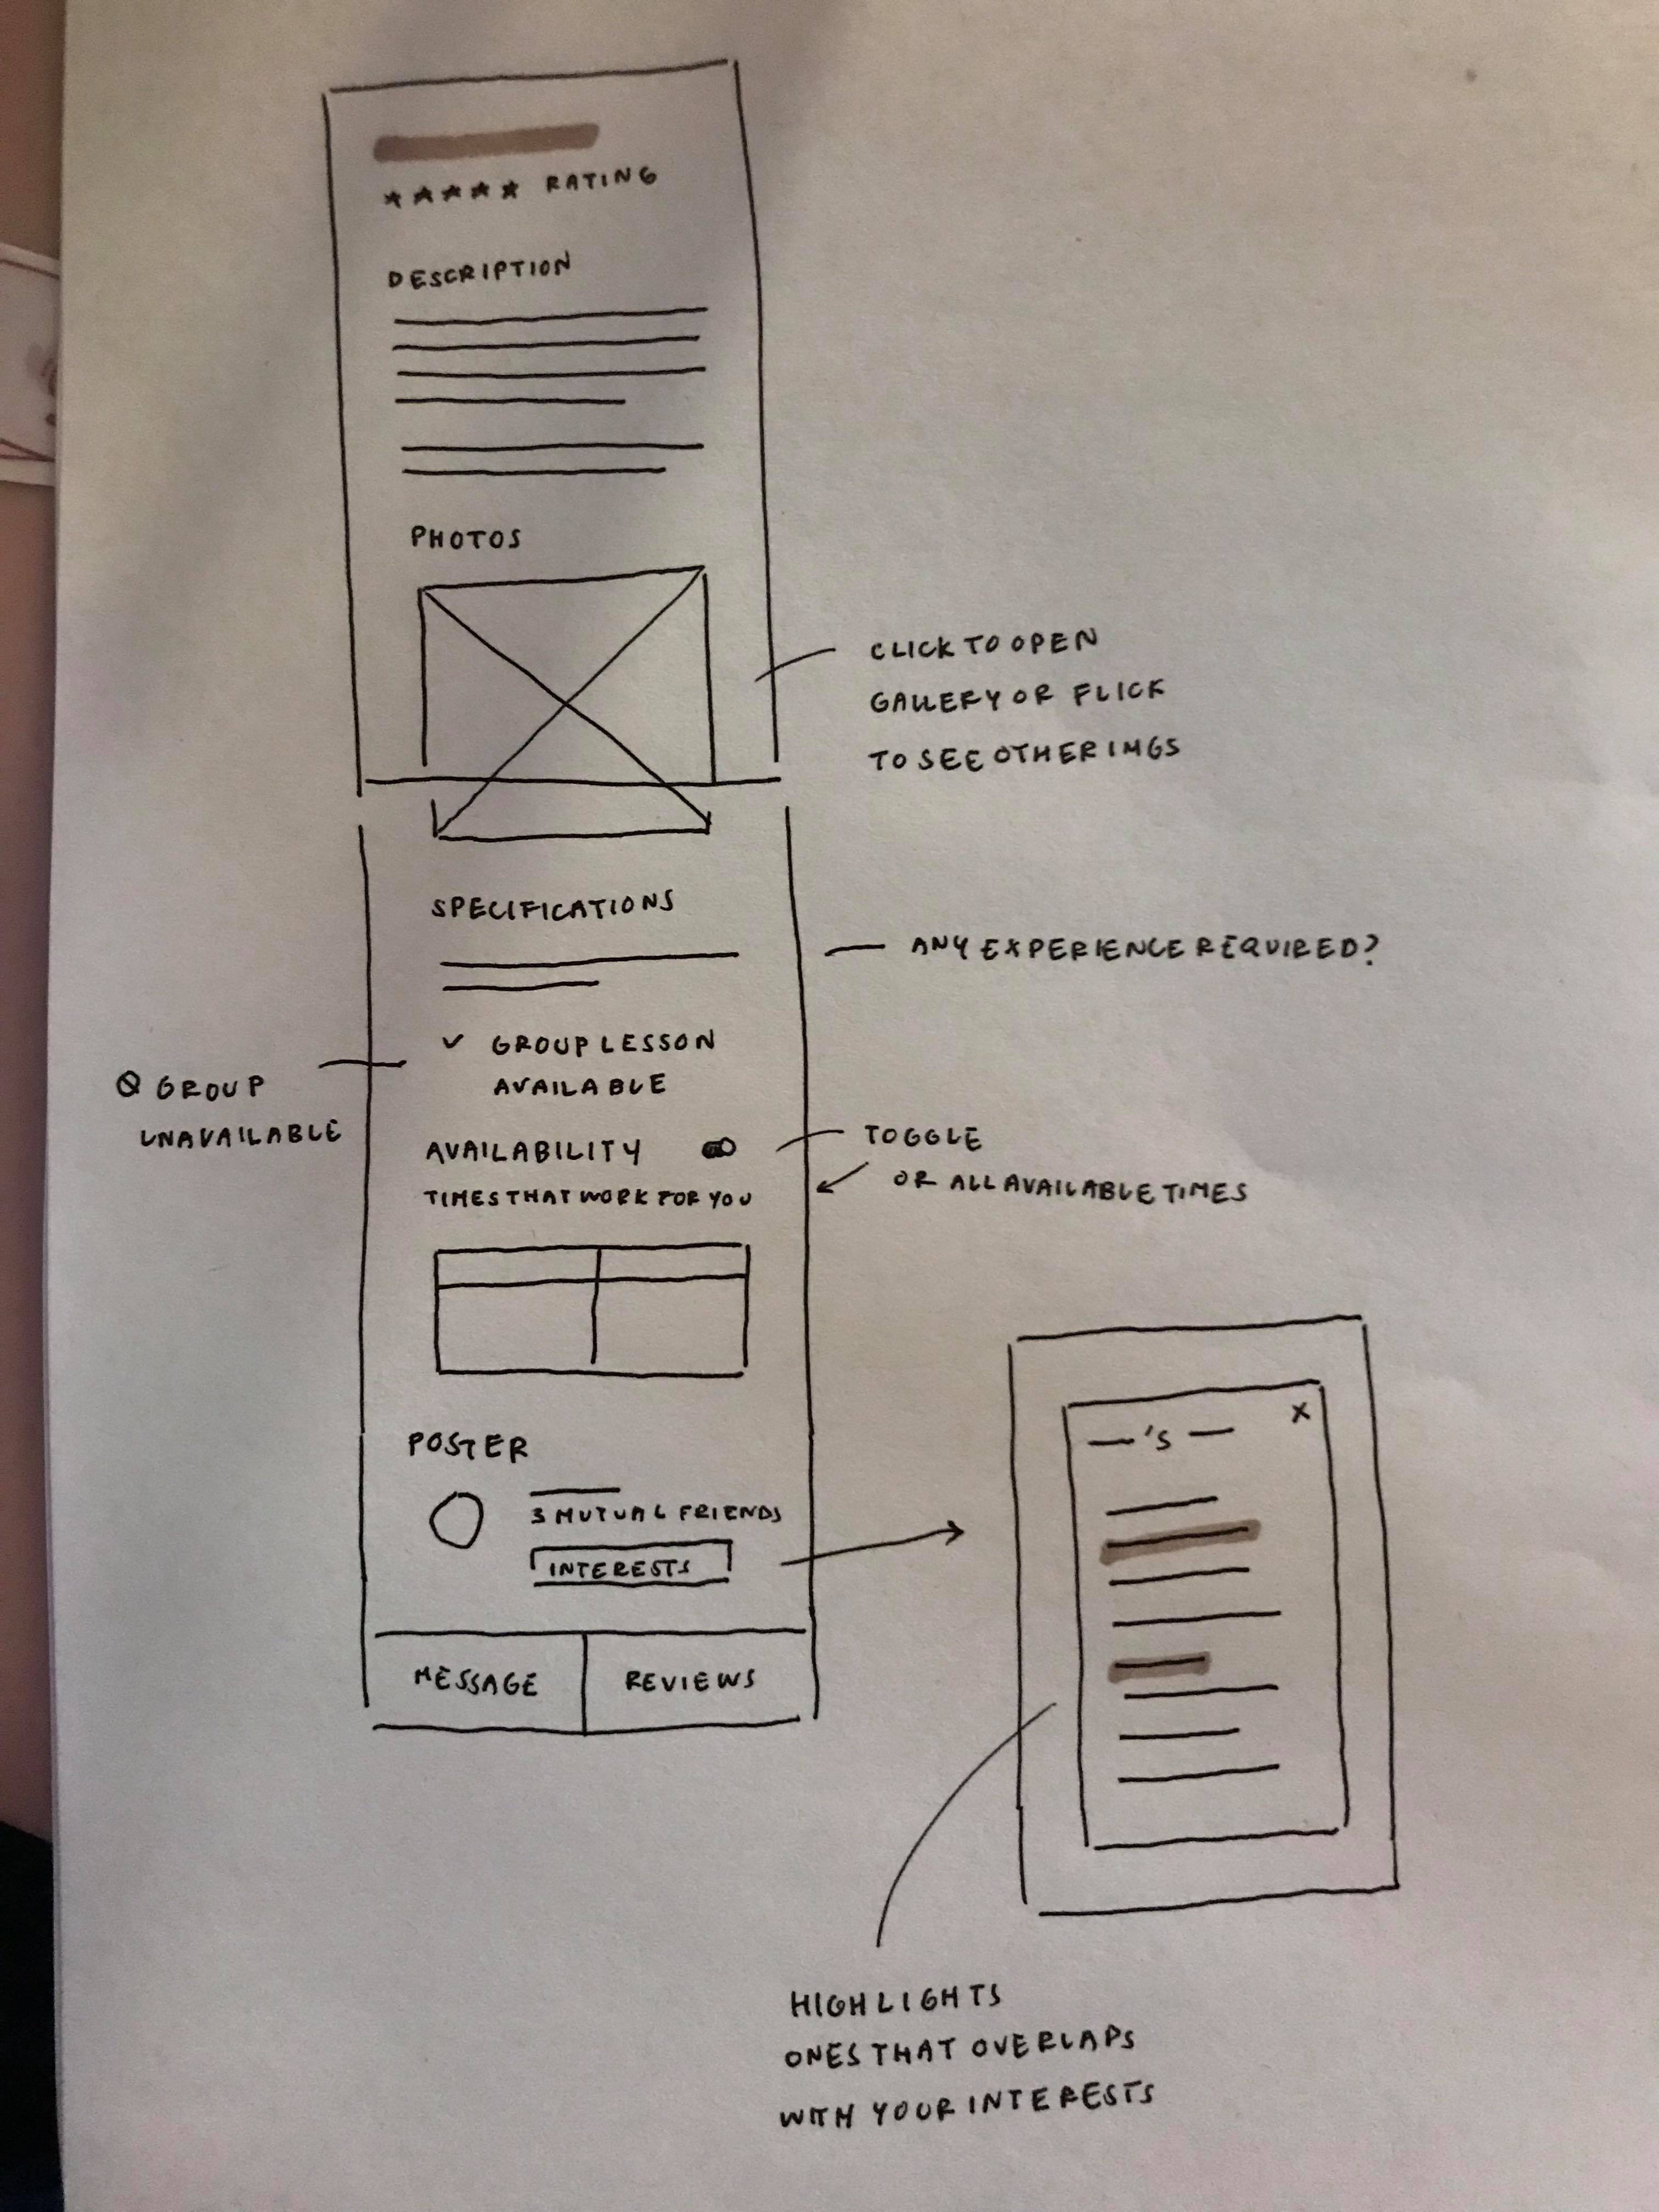 ★★★★★ RATING
DESCRIPTION
PHOTOS
CLICK TO OPEN
GALLERY OR FLICK
TO SEE OTHER IMGS
SPECIFICATIONS
ANY EXPERIENCE REQUIRED?
✓ GROUP LESSON
AVAILABLE
GROUP
UNAVAILABLE
AVAILABILITY
TOGGLE
OR ALL AVAILABLE TIMES
TIMES THAT WORK FOR YOU
POSTER
3 MUTUAL FRIENDS
INTERESTS
MESSAGE
REVIEWS
—'s — X
HIGHLIGHTS
ONES THAT OVERLAPS
WITH YOUR INTERESTS